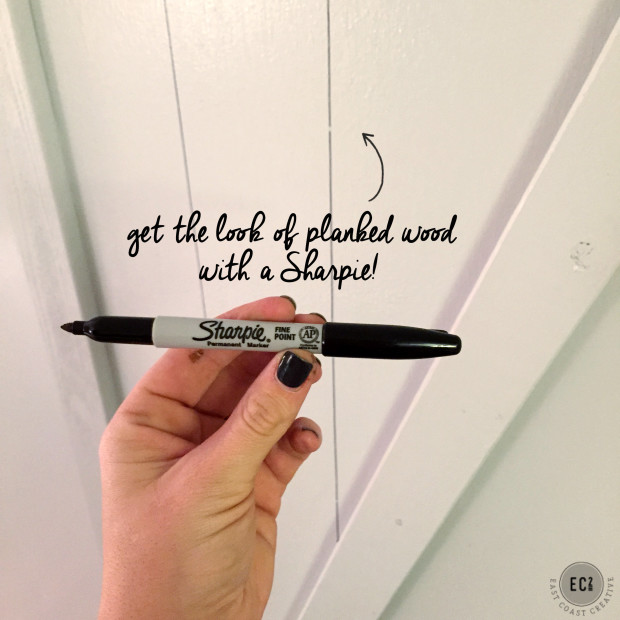 get the look of planked wood
with a Sharpie!
Sharpie®
Permanent Marker
FINE
POINT
AP
EC2
EAST COAST CREATIVE